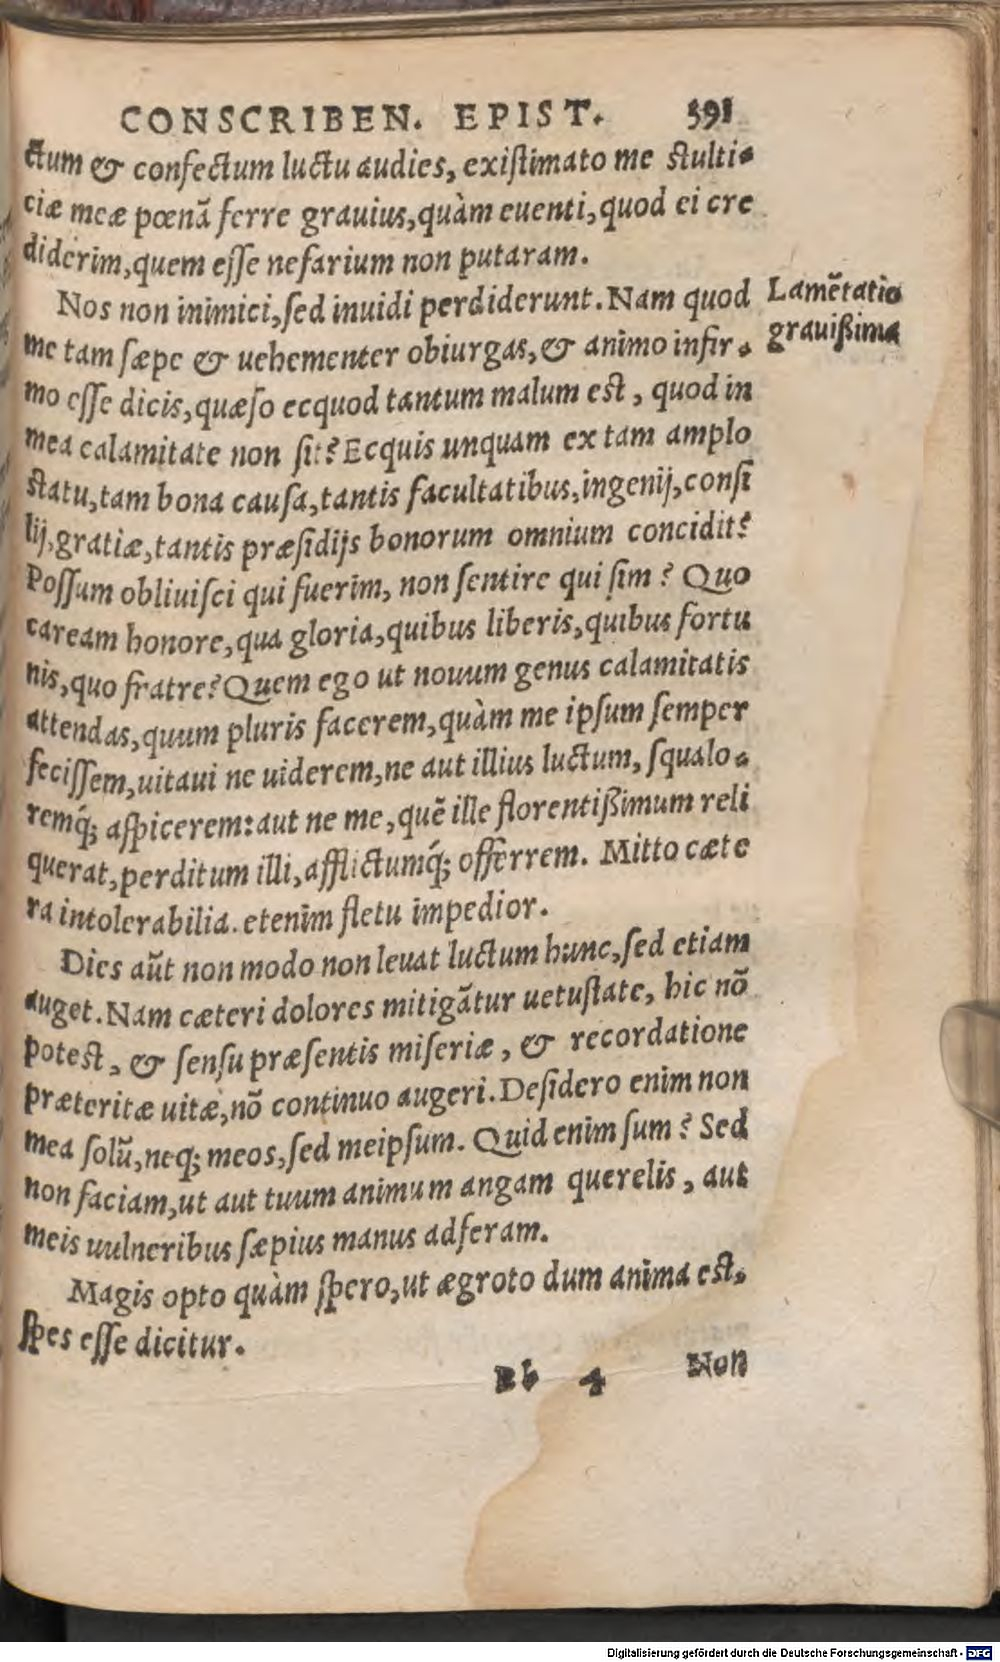 CONSCRIBEN. EPIST. 591
ctum & confectum luctu audies, exiſtimato me ſtulti-
ciæ meæ pœnã ferre grauius, quàm euenti, quod ei cre
diderim, quem eſſe nefarium non putaram.
Nos non inimici, ſed inuidi perdiderunt. Nam quod
me tam ſæpe & uehementer obiurgas, & animo infir-
mo eſſe dicis, quæſo ecquod tantum malum eſt, quod in
mea calamitate non ſit? Ecquis unquam ex tam amplo
ſtatu, tam bona cauſa, tantis facultatibus, ingenij, conſi
lij, gratiæ, tantis præſidijs bonorum omnium concidit?
Poſſum obliuiſci qui fuerim, non ſentire qui ſim? Quo
caream honore, qua gloria, quibus liberis, quibus fortu
nis, quo fratre? Quem ego ut nouum genus calamitatis
attendas, quum pluris facerem, quàm me ipſum ſemper
feciſſem, uitaui ne uiderem, ne aut illius luctum, ſqualo-
remq́; aſpicerem: aut ne me, quẽ ille florentißimum reli
querat, perditum illi, afflictumq́; offerrem. Mitto cæte
ra intolerabilia. etenim fletu impedior.
Dies aũt non modo non leuat luctum hunc, ſed etiam
auget. Nam cæteri dolores mitigãtur uetuſtate, hic nõ
poteſt, & ſenſu præſentis miſeriæ, & recordatione
præteritæ uitæ, nõ continuo augeri. Deſidero enim non
mea ſolũ, neq; meos, ſed meipſum. Quid enim ſum? Sed
non faciam, ut aut tuum animum angam querelis, aut
meis uulneribus ſæpius manus adferam.
Magis opto quàm ſpero, ut ægroto dum anima eſt,
ſpes eſſe dicitur.
Bb 4 Non
Lamẽtatio
grauißima
Digitalisierung gefördert durch die Deutsche Forschungsgemeinschaft - DFG